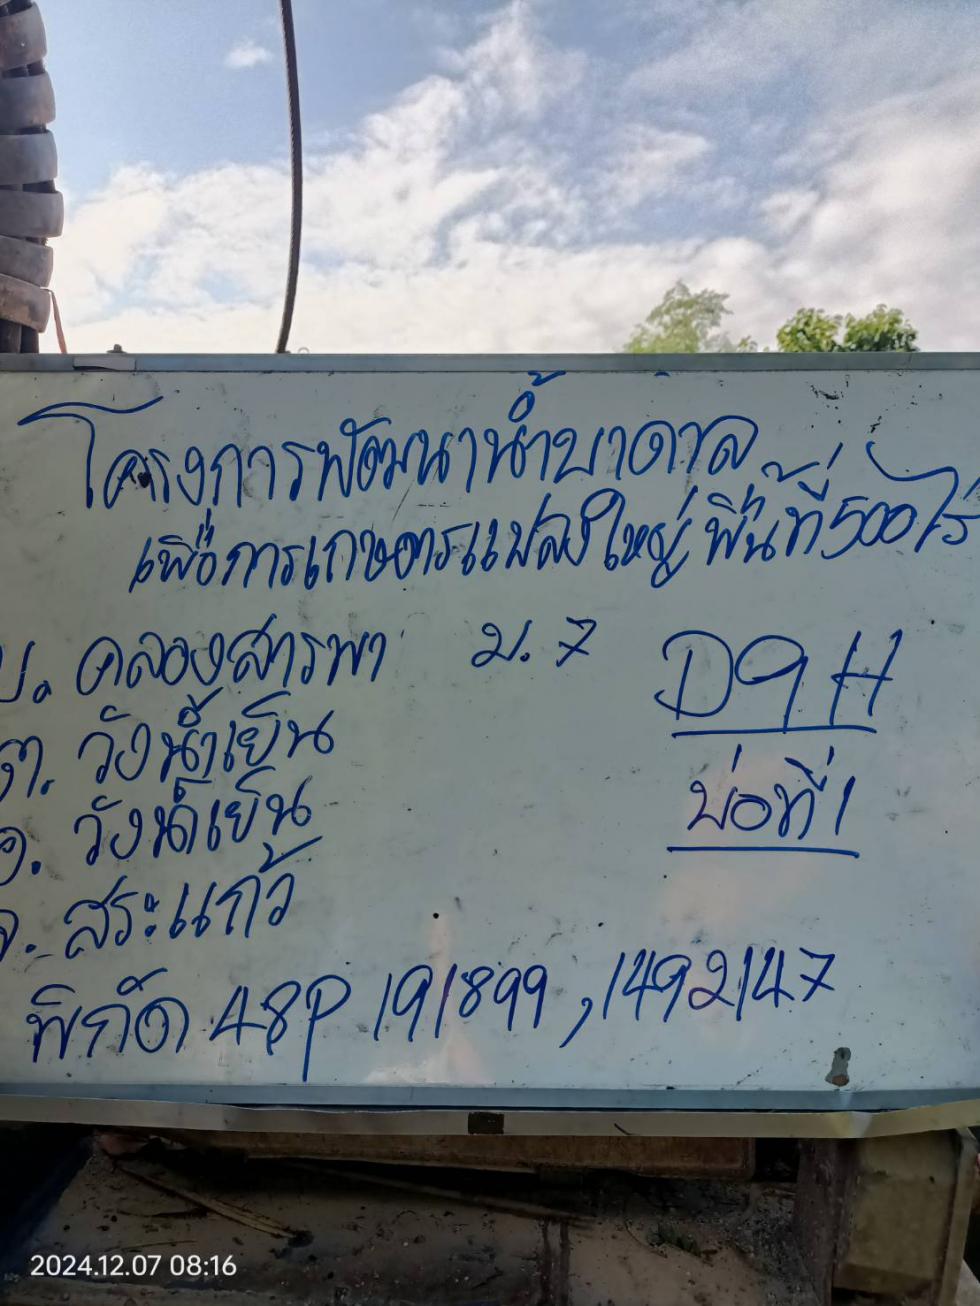 โครงการพัฒนาน้ำบาดาล
เพื่อการเกษตรแปลงใหญ่ พื้นที่ 500 ไร่
บ. คลองสารพา ม. 7
ต. วังน้ำเย็น
อ. วังน้ำเย็น
จ. สระแก้ว
D9H
บ่อที่ 1
พิกัด 48P 191899 , 1492147
2024.12.07 08:16